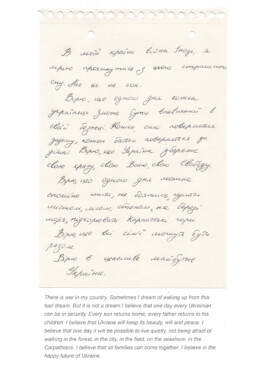 В моїй країні війна. Іноді я
мрію прокинутись з цього страшного
сну. Але це не сон.
Вірю, що одного дня кожен
українець зможе бути впевнений в
своїй безпеці. Кожен син повернеться
додому, кожен батько повернеться до
дітей. Вірю, що Україна збереже
свою красу, свою Волю, свою Свободу.
Вірю, що одного дня можна
спокійно жити, не боячись гуляти
лісом, полем, на березі
моря, підкорювати Карпатські гори.
Вірю, що всі сім'ї зможуть бути
разом.
Вірю в щасливе майбутнє
України.
There is war in my country. Sometimes I dream of waking up from this
bad dream. But it is not a dream I believe that one day every Ukrainian
can be in security. Every son returns home, every father returns to his
children. I believe that Ukraine will keep its beauty, will and peace. I
believe that one day it will be possible to live quietly, not being afraid of
walking in the forest, in the city, in the field, on the seashore, in the
Carpathians. I believe that all families can come together. I believe in the
happy future of Ukraine.